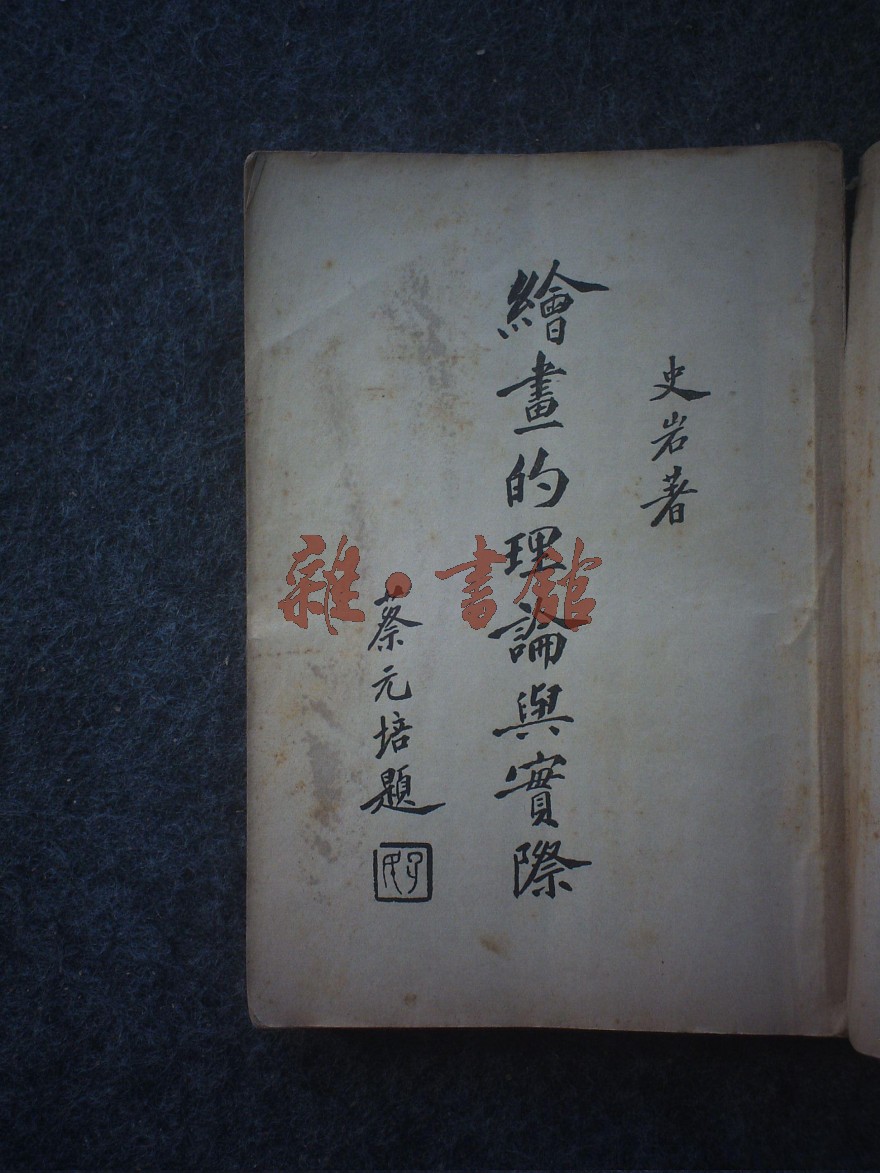 史岩著
繪畫的理論與實際
蔡元培題
孑民
雜·書館